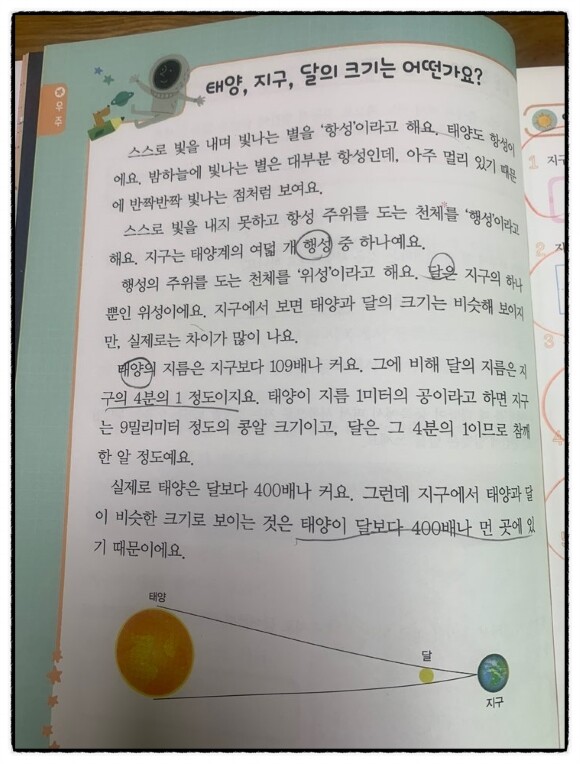 우주
태양, 지구, 달의 크기는 어떤가요?
스스로 빛을 내며 빛나는 별을 '항성'이라고 해요. 태양도 항성이
에요. 밤하늘에 빛나는 별은 대부분 항성인데, 아주 멀리 있기 때문
에 반짝반짝 빛나는 점처럼 보여요.
스스로 빛을 내지 못하고 항성 주위를 도는 천체를 '행성'이라고
해요. 지구는 태양계의 여덟 개 행성 중 하나예요.
행성의 주위를 도는 천체를 '위성'이라고 해요. 달은 지구의 하나
뿐인 위성이에요. 지구에서 보면 태양과 달의 크기는 비슷해 보이지
만, 실제로는 차이가 많이 나요.
태양의 지름은 지구보다 109배나 커요. 그에 비해 달의 지름은 지
구의 4분의 1 정도이지요. 태양이 지름 1미터의 공이라고 하면 지구
는 9밀리미터 정도의 콩알 크기이고, 달은 그 4분의 1이므로 참깨
한 알 정도예요.
실제로 태양은 달보다 400배나 커요. 그런데 지구에서 태양과 달
이 비슷한 크기로 보이는 것은 태양이 달보다 400배나 먼 곳에 있
기 때문이에요.
태양
달
지구
1 지구
2
3